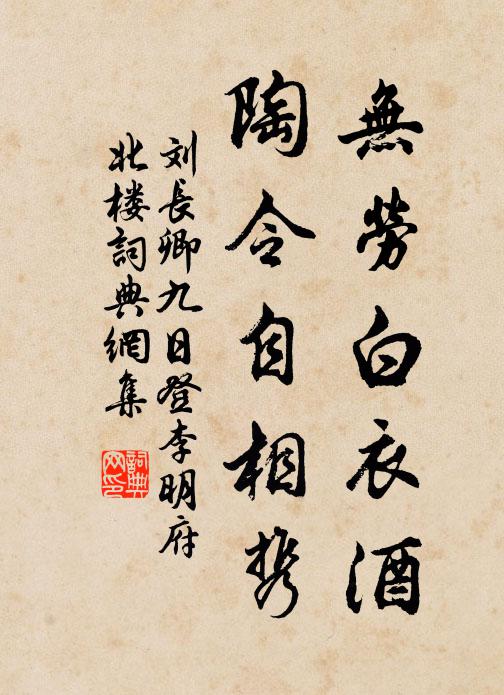 無勞白衣酒
陶令自相携
刘長卿九日登李明府
北楼詞典網集
詞典網印